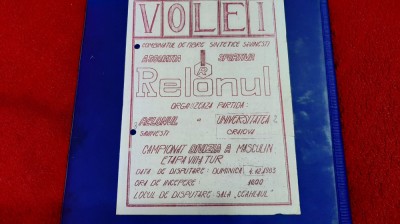 VOLEI
COMBINATUL DE FIBRE SINTETICE SĂVINEȘTI
ASOCIAȚIA SPORTIVĂ
Relonul
ORGANIZEAZĂ PARTIDA:
RELONUL - UNIVERSITATEA
SĂVINEȘTI CRAIOVA
CAMPIONAT DIVIZIA A MASCULIN
ETAPA VIII TUR
DATA DE DISPUTARE: DUMINICĂ
ORA DE ÎNCEPERE:
LOCUL DE DISPUTARE: SALA „CEAHLĂUL"